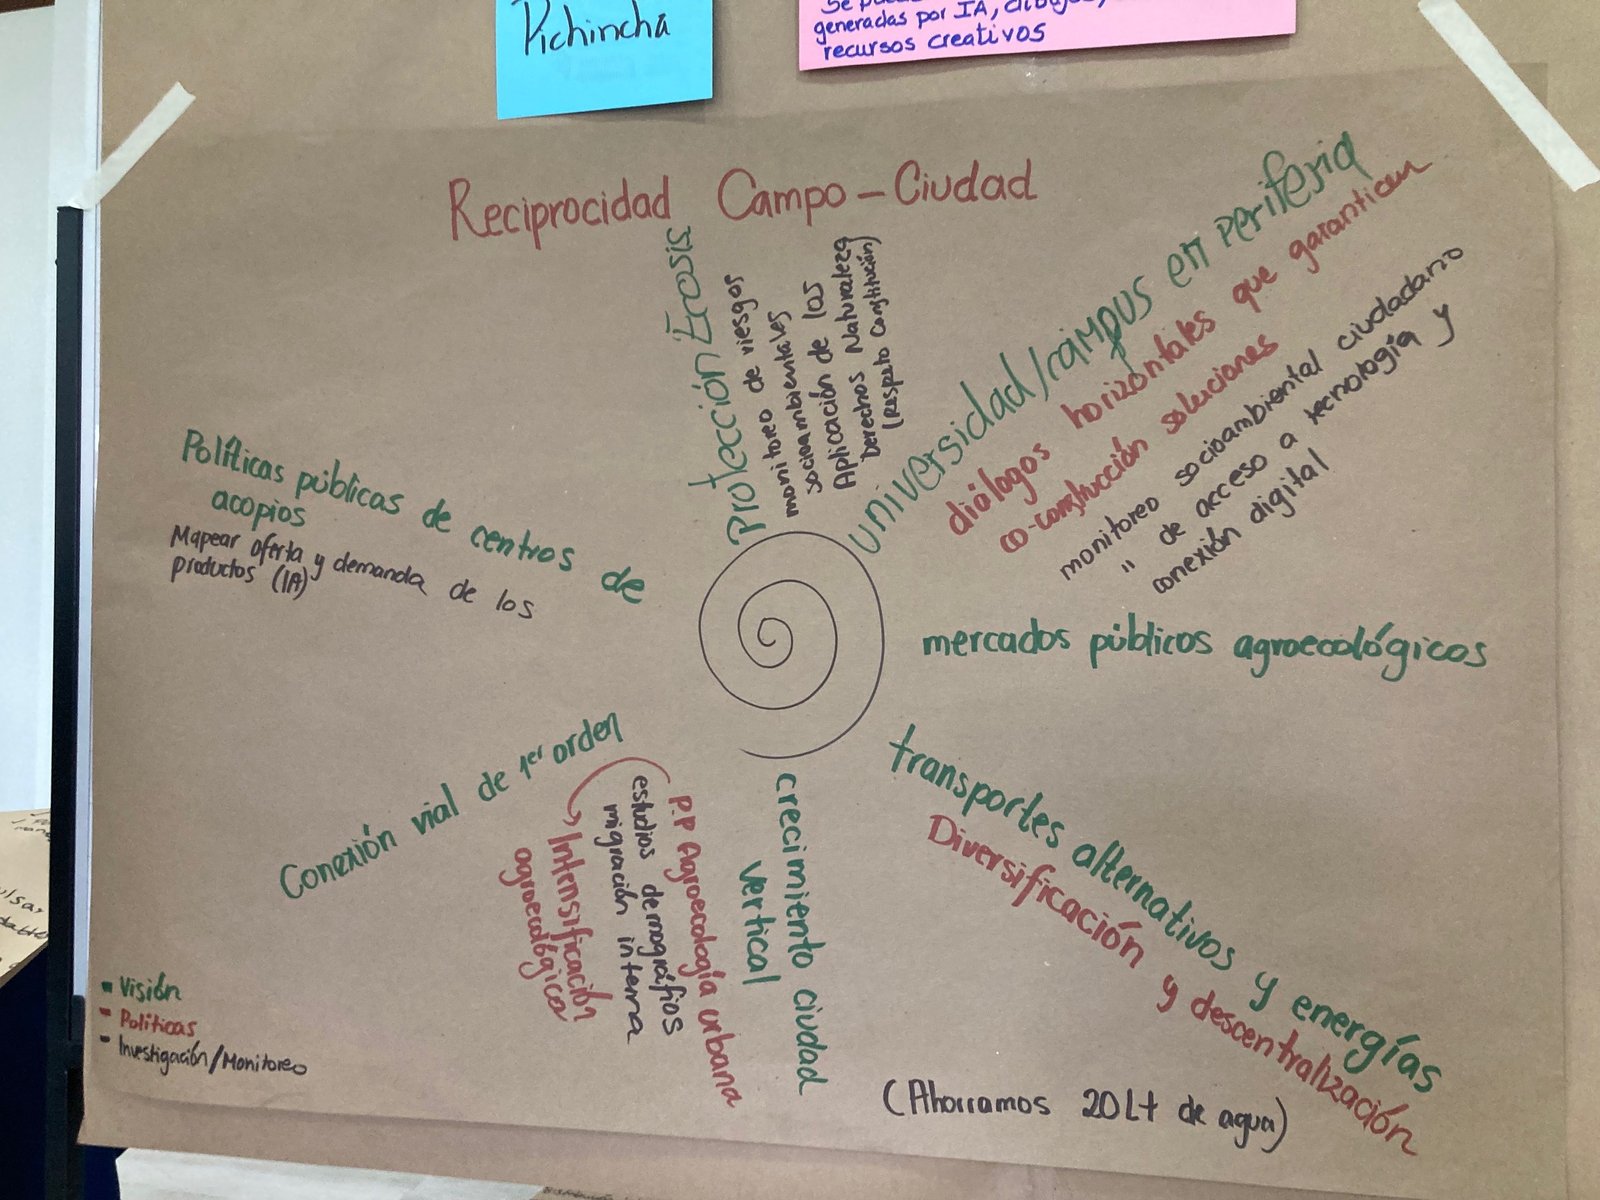 Pichincha
generadas por IA, dibujos,
recursos creativos
Reciprocidad Campo-Ciudad
Protección Ecosis
monitoreo de riesgos
socioambientales
Aplicación de los
Derechos Naturaleza
(respeto Constitución)
Universidad/campus en periferia
diálogos horizontales que garanticen
co-construcción soluciones
monitoreo socioambiental ciudadano
" de acceso a tecnología y
conexión digital
mercados públicos agroecológicos
transportes alternativos y energías
Diversificación y descentralización
(Ahorramos 20Lt de agua)
crecimiento ciudad
vertical
P.P Agroecología urbana
estudios demográfios
migración interna
Intensificación
agroecológica
Conexión vial de 1er orden
Políticas públicas de centros de
acopios
Mapear oferta y demanda de los
productos (IA)
- Visión
- Políticas
- Investigación/Monitoreo